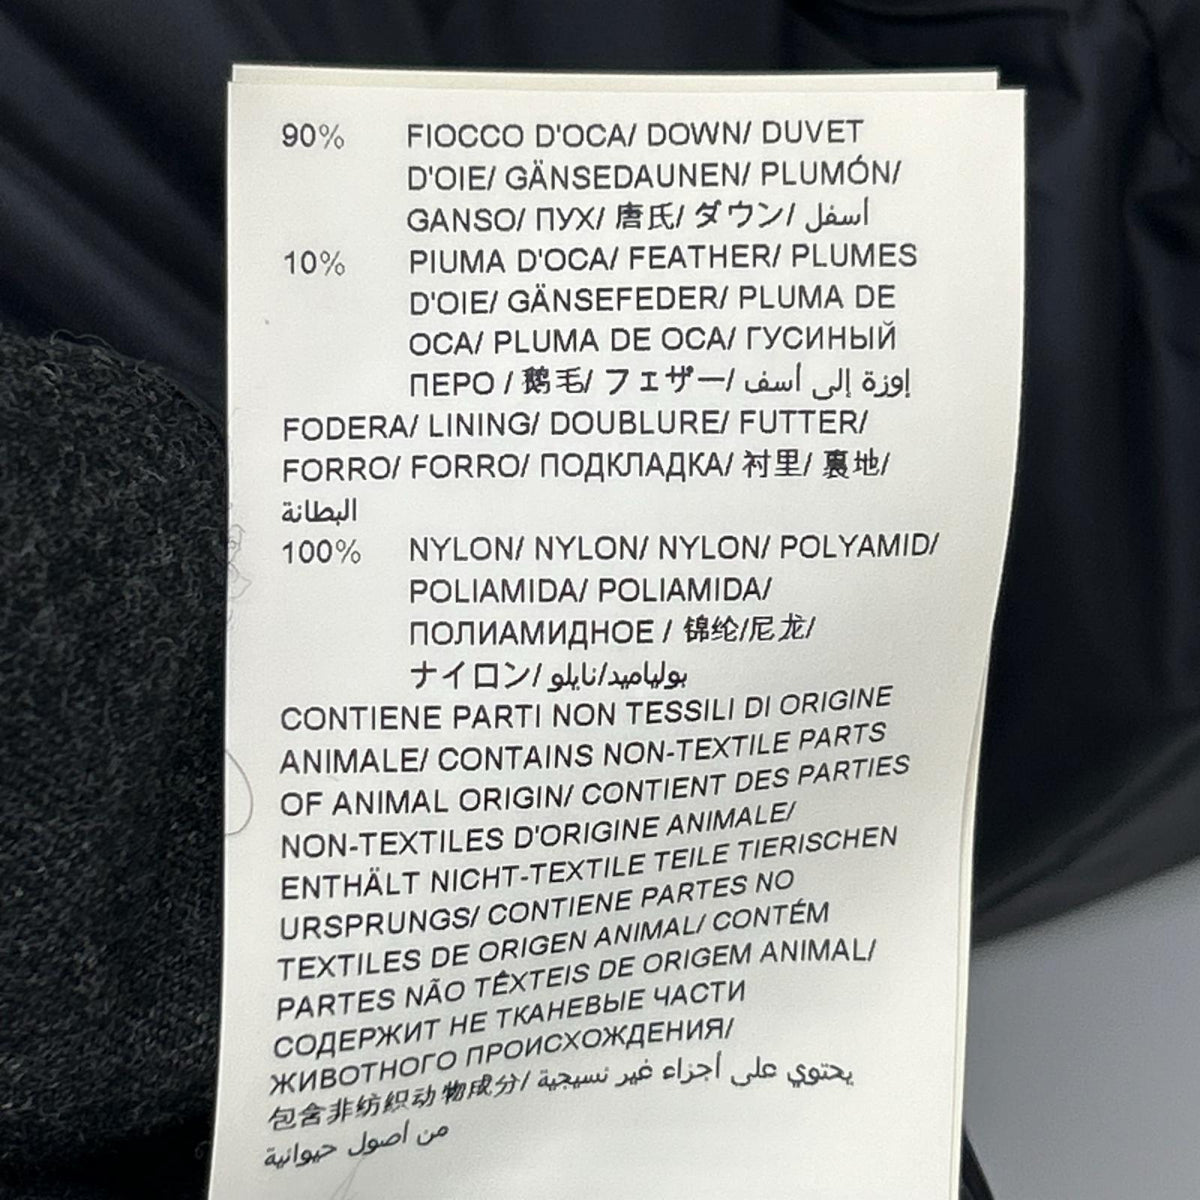 90% FIOCCO D'OCA/ DOWN/ DUVET
D'OIE/ GÄNSEDAUNEN/ PLUMÓN/
GANSO/ ПУХ/ 唐氏/ ダウン/ أسفل
10% PIUMA D'OCA/ FEATHER/ PLUMES
D'OIE/ GÄNSEFEDER/ PLUMA DE
OCA/ PLUMA DE OCA/ ГУСИНЫЙ
ПЕРО / 鹅毛/ フェザー/ إوزة إلى أسف
FODERA/ LINING/ DOUBLURE/ FUTTER/
FORRO/ FORRO/ ПОДКЛАДКА/ 衬里/ 裏地/
البطانة
100% NYLON/ NYLON/ NYLON/ POLYAMID/
POLIAMIDA/ POLIAMIDA/
ПОЛИАМИДНОЕ / 锦纶/尼龙/
ナイロン/ بولياميد/نايلو
CONTIENE PARTI NON TESSILI DI ORIGINE
ANIMALE/ CONTAINS NON-TEXTILE PARTS
OF ANIMAL ORIGIN/ CONTIENT DES PARTIES
NON-TEXTILES D'ORIGINE ANIMALE/
ENTHÄLT NICHT-TEXTILE TEILE TIERISCHEN
URSPRUNGS/ CONTIENE PARTES NO
TEXTILES DE ORIGEN ANIMAL/ CONTÉM
PARTES NÃO TÊXTEIS DE ORIGEM ANIMAL/
СОДЕРЖИТ НЕ ТКАНЕВЫЕ ЧАСТИ
ЖИВОТНОГО ПРОИСХОЖДЕНИЯ/
包含非纺织动物成分/ يحتوي على أجزاء غير نسيجية
من اصول حيوانية